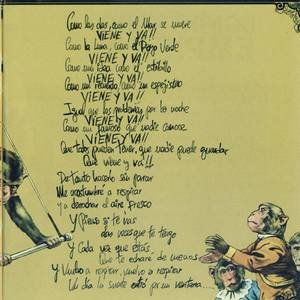 Como las olas, como el Mar, se mueve
VIENE Y VA!!
Como la Luna, como el Perro Verde
VIENE Y VA!!
Como una idea como el estribillo
VIENE Y VA!!
Como un recuerdo, como un espejismo
VIENE Y VA!!
Igual que los problemas por la noche
VIENE Y VA!!
Como un famoso que nadie conoce
VIENE Y VA!!
Que todos pueden tener, que nadie puede guardar
Que viene y va!!
De tanto hacerlo sin parar
Me acostumbre a respirar
Y a el aire fresco
Y Pienso si te vas
veces que te tengo
Y Cada vez que estás
Que te echaré de menos
Y Vuelvo a respirar, vuelvo a respirar
Un día la suerte entró por mi ventana...